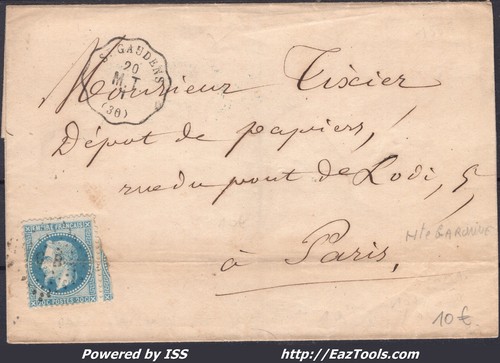 St GAUDENS
20
M T
(30)
Monsieur Tixier
Dépot de papiers,
rue du pont de Lodi, 5
à Paris,
Hte GARONNE
EMPIRE FRANCAIS
20C POSTES 20C
10 €
Powered by ISS
http://EazTools.com